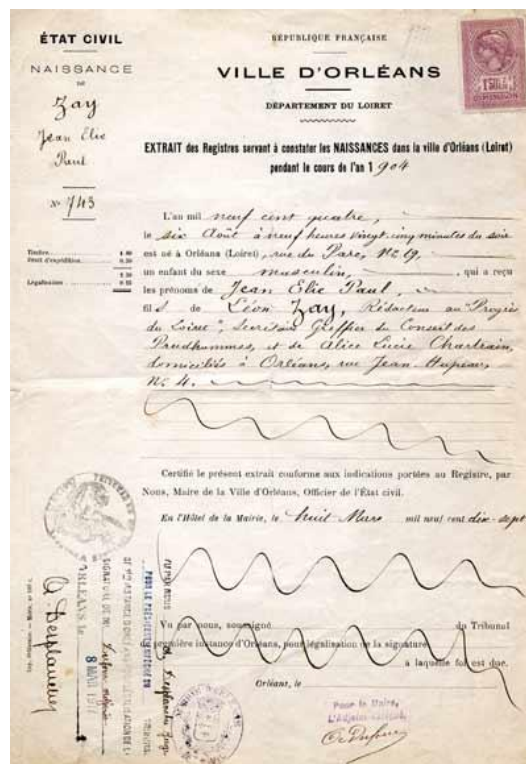 ÉTAT CIVIL
NAISSANCE
DE
Zay
Jean Elie
Paul
N° 743
Timbre
Droit d'expédition
Légalisation
RÉPUBLIQUE FRANÇAISE
VILLE D'ORLÉANS
DÉPARTEMENT DU LOIRET
EXTRAIT des Registres servant à constater les NAISSANCES dans la ville d'Orléans (Loiret)
pendant le cours de l'an 1904
L'an mil neuf cent quatre,
le six Août à neuf heures vingt cinq minutes du soir
est né à Orléans (Loiret), rue du Parc, N° 19,
un enfant du sexe masculin, qui a reçu
les prénoms de Jean Elie Paul,
fils de Léon Zay, Rédacteur au "Progrès
du Loiret", Secrétaire Greffier du Conseil des
Prudhommes, et de Alice Lucie Chartrain,
domiciliés à Orléans, rue Jean Hupeau,
N° 4.
Certifié le présent extrait conforme aux indications portées au Registre, par
Nous, Maire de la Ville d'Orléans, Officier de l'État civil.
En l'Hôtel de la Mairie, le huit Mars mil neuf cent dix-sept
Vu par nous, soussigné du Tribunal
de première instance d'Orléans, pour légalisation de la signature
à laquelle foi est due.
Orléans, le
Pour le Maire,
L'Adjoint
ORLÉANS le
8 MAR 1917